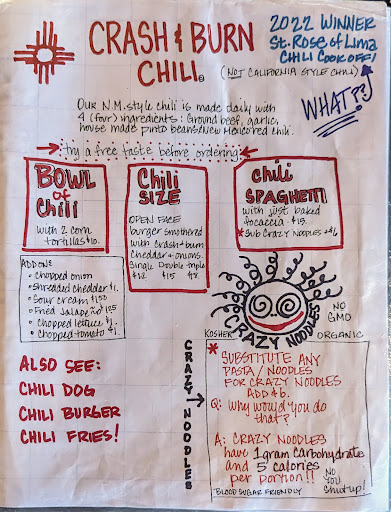 CRASH & BURN
CHILI
2022 WINNER
St. Rose of Lima
CHILI COOKOFF!
(NOT CALIFORNIA STYLE CHILI)
WHAT??
OUR N.M. style chili is made daily with
4 (four) ingredients: Ground beef, garlic,
house made pinto beans/New Mexico red chili.
try a free taste before ordering
BOWL
of
Chili
with 2 corn
tortillas $10.
ADD ONS:
• Chopped onion
• Shredded cheddar $1.
• Sour cream $1.50
• Fried Jalapeño $1.25
• Chopped lettuce $1.
• Chopped tomato $1.
Chili
SIZE
OPEN FACE
burger smothered
with crash & burn
Cheddar & onions.
Single Double triple
$12 $15 $18.
Chili
SPAGHETTI
with just baked
focaccia - $15.
*Sub CRAZY NOODLES +$6.
CRAZY NOODLES
NO
GMO
KOSHER
ORGANIC
ALSO SEE:
CHILI DOG
CHILI BURGER
CHILI FRIES!
CRAZY NOODLES
* SUBSTITUTE ANY
PASTA/NOODLES
FOR CRAZY NOODLES
ADD $6.
Q: Why would you do
that?
A: CRAZY NOODLES
have 1 gram carbohydrate
and 5 calories
per portion!!
NO
YOU
Shut up!
*BLOOD SUGAR FRIENDLY